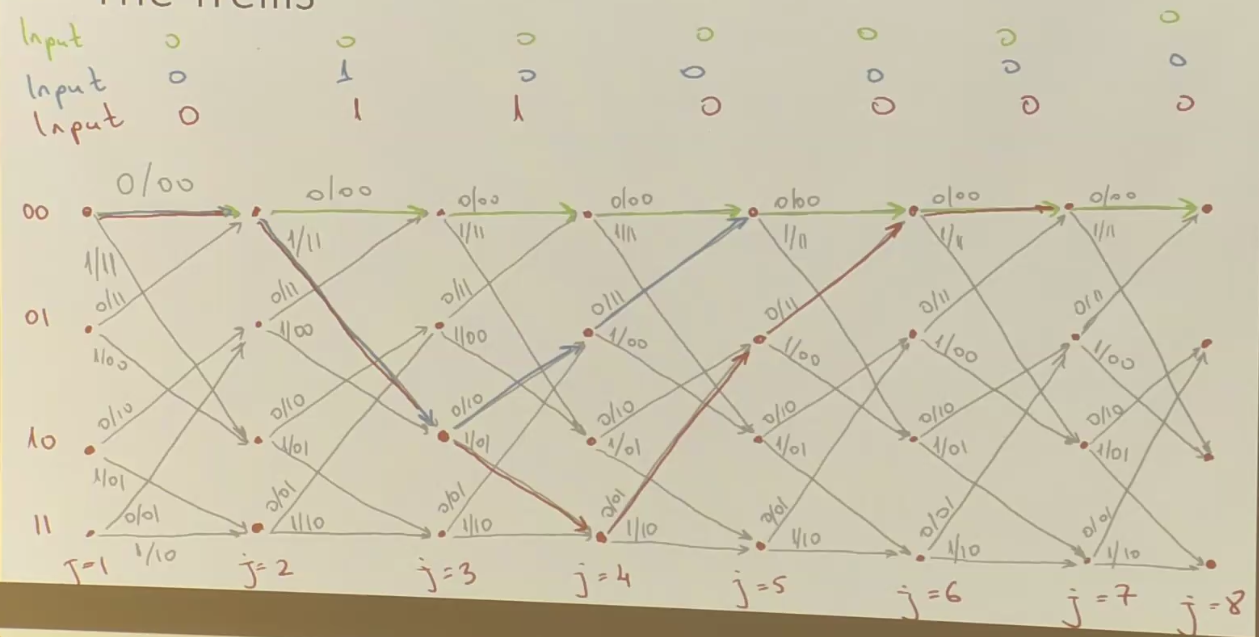 Input 0 0 0 0 0 0 0
Input 0 1 0 0 0 0 0
Input 0 1 1 0 0 0 0
0/00 0/00 0/00 0/00 0/00 0/00 0/00
00
1/11 1/11 1/11 1/11 1/11 1/11 1/11
0/11 0/11 0/11 0/11 0/11 0/11 0/11
01
1/00 1/00 1/00 1/00 1/00 1/00 1/00
0/10 0/10 0/10 0/10 0/10 0/10 0/10
10
1/01 1/01 1/01 1/01 1/01 1/01 1/01
0/01 0/01 0/01 0/01 0/01 0/01 0/01
11
1/10 1/10 1/10 1/10 1/10 1/10 1/10
j=1 j=2 j=3 j=4 j=5 j=6 j=7 j=8